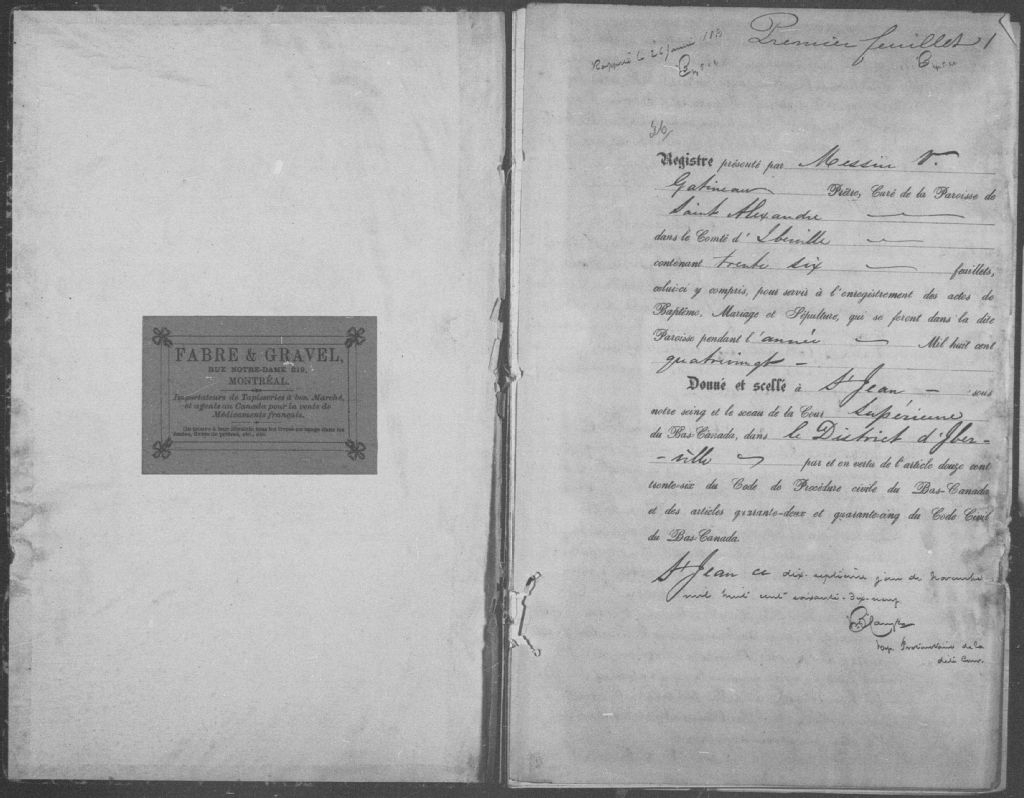 FABRE & GRAVEL,
RUE NOTRE-DAME 219,
MONTRÉAL.
Importateurs de Tapisseries à bon Marché,
et agents au Canada pour la vente de
Médicaments français.
On trouve à leur librairie tous les livres en usage dans les
écoles, livres de prières, etc., etc.
Premier feuillet 1
36/
Registre présenté par Messire V.
Gatineau Prêtre, Curé de la Paroisse de
Saint Alexandre
dans le Comté d'Iberville
contenant trente six feuillets,
celui-ci y compris, pour servir à l'enregistrement des actes de
Baptême, Mariage et Sépulture, qui se feront dans la dite
Paroisse pendant l'année Mil huit cent
quatrevingt –
Donné et scellé à St Jean – sous
notre seing et le sceau de la Cour Supérieure
du Bas-Canada, dans le District d'Iber-
-ville par et en vertu de l'article douze cent
trente-six du Code de Procédure civile du Bas-Canada
et des articles quarante-deux et quarante-cinq du Code Civil
du Bas-Canada.
St Jean ce dix-septième jour de Novembre
mil huit cent soixante-dix-neuf
Dep Protonotaire de la
dite Cour.